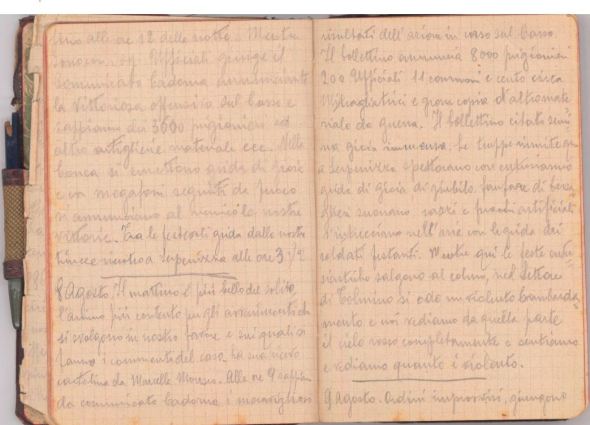 fino alle ore 12 della notte. Mentre
sono con gli Ufficiali giunge il
comunicato Cadorna annunciante
la vittoriosa offensiva sul Carso e
sappiamo da 3600 prigionieri ed
altro artiglierie materiale ecc. Nella
conca si emettono grida di gioia
e con megafoni seguiti da fuoco
si annunciano al nemico le nostre
vittorie. Tra le festanti grida dalle nostre
trincee ritorno a Supenizza alle ore 3 1/2
8 Agosto. Il mattino è più bello del solito,
l'animo più contento per gli avvenimenti che
si svolgono in nostro favore e sui quali si
fanno i commenti del caso. ha sua ricevo
cartolina da Marcello. Alle ore 9 sappia
da comunicato Cadorna i maravigliosi
risultati dell'azione in corso sul Carso.
Il bollettino annuncia 8000 prigionieri
200 Ufficiali 11 cannoni e cento circa
Mitragliatrici e gran copia d'altro mate
riale da guerra. Il bollettino citato semi
na gioia immensa. Le truppe riunite qui
a Supenizza spettorano con entusiasmo
grida di gioia di giubilo, fanfare di bersa
glieri suonano razzi e fuochi artificiali
s'intrecciano nell'aria con le grida dei
soldati festanti. Mentre qui le feste entu
siastiche salgono al colmo, nel Settore
di Tolmino si ode un violento bombarda
mento e noi vediamo da quella parte
il cielo rosso completamente e sentiamo
e vediamo quanto è violento.
9 Agosto. Ordini improvvisi, giungono